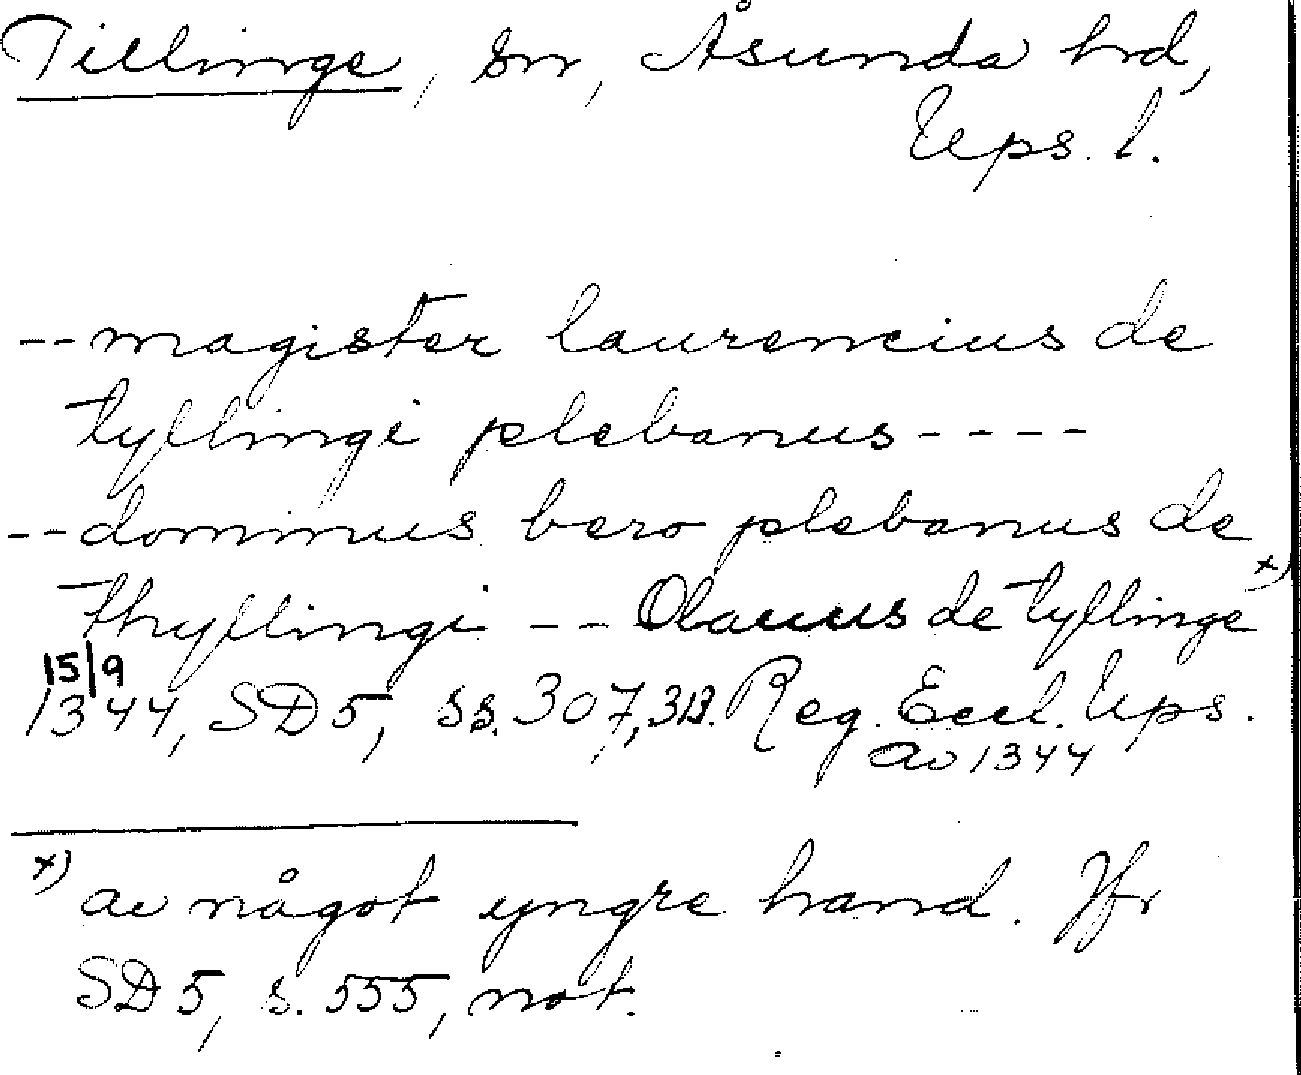 Tillinge, sn, Åsunda hrd,
Ups. l.
-- magister laurencius de
tyllingi plebanus ----
-- dominus bero plebanus de
thyllingi -- Olauus de tyllinge x)
15/9
1344, SD 5, ss. 307, 313. Reg. Eccl. Ups.
av 1344
x) av något yngre hand. Jfr
SD 5, s. 555, not.